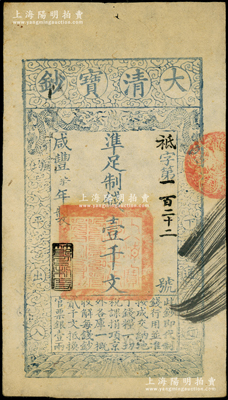 上海阳明拍卖
大清寶鈔
祗字第一百二十二號
準足制錢壹千文
咸豐 年製
此鈔即代制錢
行用並准按
成交納地
丁錢糧一切
稅課捐項京
外各庫一概
收解每錢鈔
貳千文抵換
官票銀壹兩